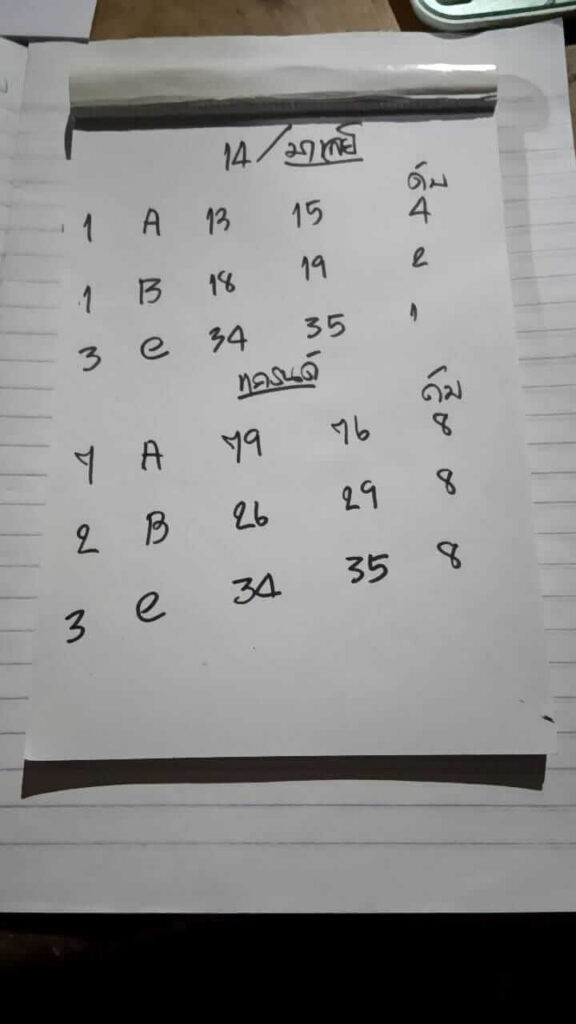 14/มาเลย์
ดับ
1 A 13 15 4
1 B 18 19 2
3 e 34 35 1
ดับ
7 A 79 76 8
2 B 26 29 8
3 e 34 35 8